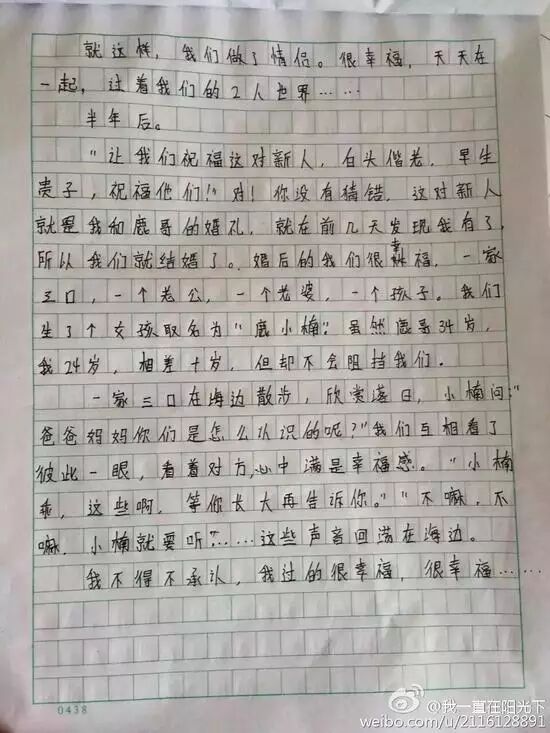 就这样，我们做了情侣。很幸福，天天在
一起，过着我们的2人世界……
半年后。
“让我们祝福这对新人，白头偕老，早生
贵子，祝福他们！”对！你没有猜错，这对新人
就是我和鹿哥的婚礼，就在前几天发现我有了，
所以我们就结婚了。婚后的我们很幸福，一家
三口，一个老公，一个老婆，一个孩子。我们
生了个女孩取名为“鹿小楠”虽然鹿哥34岁，
我24岁，相差十岁，但却不会阻挡我们．
一家三口在海边散步，欣赏落日，小楠问：“
爸爸妈妈你们是怎么认识的呢？”我们互相看了
彼此一眼，看着对方，心中满是幸福感。“小楠
乖，这些啊，等你长大再告诉你。”“不嘛，不
嘛，小楠就要听”……这些声音回荡在海边。
我不得不承认，我过的很幸福，很幸福……
0438
@我一直在阳光下
weibo.com/u/2116128891